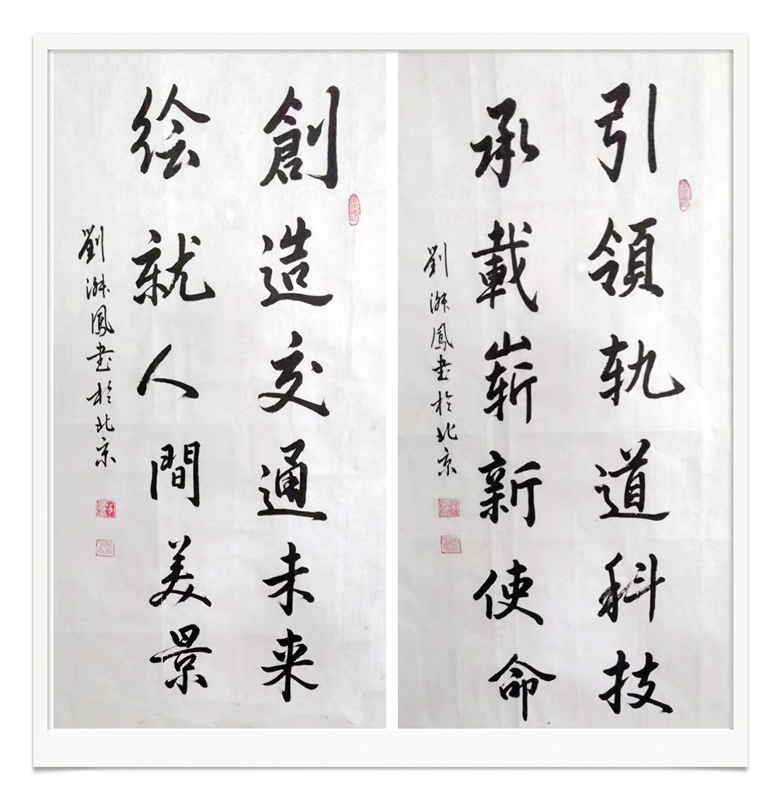 引領轨道科技
承載崭新使命
劉淑鳳書於北京
創造交通未来
绘就人間美景
劉淑鳳書於北京